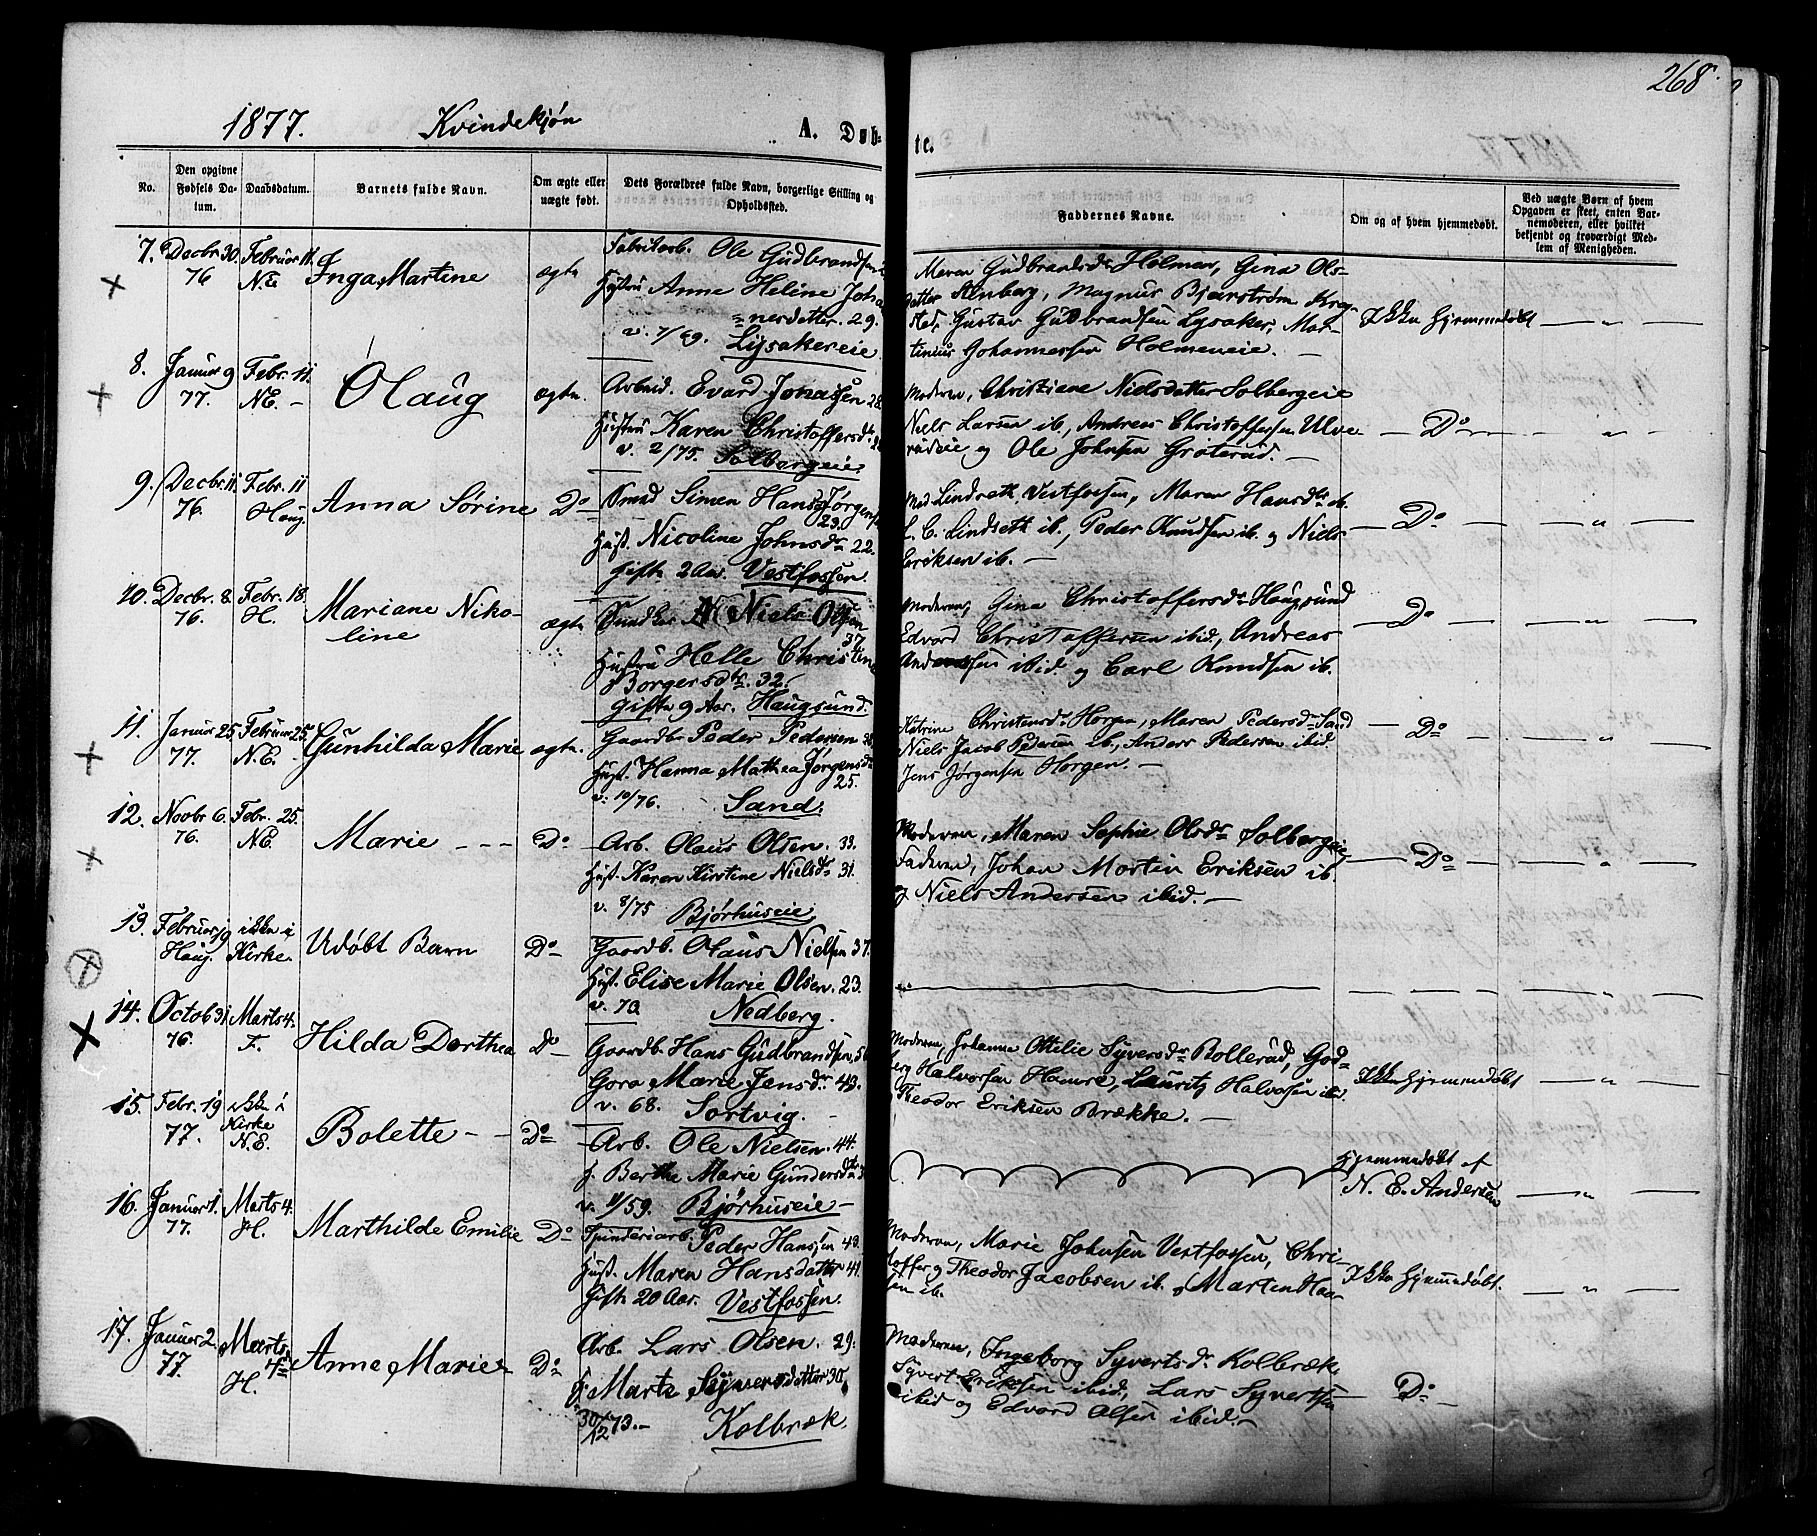 268
1877. Kvindekjøn A. Døb-
te.
No.
Den opgivne Fødsels Da-
tum.
Daabsdatum.
Barnets fulde Navn.
Om ægte eller
uægte født.
Dets Forældres fulde Navn, borgerlige Stilling og
Opholdssted.
Faddernes Navne.
Om og af hvem hjemmedøbt.
Ved uægte Børn af hvem
Opgaven er skeet, enten Bar-
nemoderen, eller hvilket
bekjendt og troværdigt Med-
lem af Menigheden.
7. Decbr 30. 76 Februar 11. N.E. Inga Martine ægte
Fabrikarb. Ole Gudbrandsen
Hustru Anne Heline Joha
nesdatter. 29.
v. 7/69. Lysakereie
Maren Gudbrandsdr Holmen, Gina Ols-
datter Stenberg, Magnus Bjerstrøm Krog
sted, Gustav Gudbrandsen Lysaker, Mar-
tinius Johannessen Holmeneie. —
Ikke hjemmedøbt — " —
8. Januar 9 77. Febr. 11. N.E. — Olaug ægte.
Arbeid. Evard Johassen 28.
Hustru Karen Christoffersdr
v. 2/75. Solbergeie
Moderen, Christiane Nielsdatter Solbergeie
Niels Larsen ib., Andreas Christoffersen Ulve-
rudeie og Ole Johnsen Groterud. —
— Do — — " —
9. Decbr. 11. 76. Febr. 11 Haug. Anna Sørine Do
Smed Simen Hans Jørgensen
23.
Hust. Nicoline Johnsdr 22.
Gifte 2 Aar. Vestfossen
Lindseth Vestfossen, Maren Hansdtr ib.
L. C. Lindseth ib., Peder Knudsen ib. og Niels
Eriksen ib. —
— Do — — " —
10. Decbr. 8 76. Febr. 18. H. Mariane Niko-
line ægte
Niels Olsen
37
Hustru Helle Christine
Borgersdtr. 32.
Gifte 9 Aar. Haugsund.
Moderen, Gina Christoffersdr Haugsund
Edvard Christoffersen ibid., Andreas
Andersen ibid. og Carl Knudsen ib.
— Do — — " —
11. Januar 25. 77. Februar 25. N.E. Gunhilda Marie ægte.
Gaardbr Peder Pedersen 28.
Hust. Hanna Mathea Jørgensdr
25.
v. 10/76. Sand.
Katrine Christensdr Horgen, Maren Pedersdr Sand
Niels Jacob Pedersen ib., Anders Pedersen ibid.
Jens Jørgensen Horgen. —
— Do — — " —
12. Novbr 6. 76. Febr. 25. N.E. Marie - - - Do
Arb. Olaus Olsen. 33.
Hust. Karen Kirstine Nielsdr 31.
v. 8/75 Bjørhuseie
Moderen, Maren Sophie Olsdr Solbergeie,
Faderen, Johan Martin Eriksen ib
og Niels Andersen ibid. —
— Do — — " —
13. Februar 19 Haug. ikke i Kirke. Udøbt Barn Do
Gaardb. Olaus Nielsen 37.
Hust. Elise Marie Olsen. 23.
v. 73. Nedberg.
14. Octob 31. 76. Marts 4. F. Hilda Dorthea Do
Gaardb. Hans Gudbrandsen. 56
Gora Marie Jensdr 43.
v. 68. Sortvig.
Moderen, Johanna Ottilie Syversdr Bollerud, God-
berg Halvorsen Hamre, Lauritz Halvorsen ib.
Theodor Eriksen Brække. —
Ikke hjemmedøbt — " —
15. Febr. 19 77. ikke i Kirke N.E. Bolette - - Do
Arb. Ole Nielsen. 44.
H. Berthe Marie Gundersdtr
v. 11/59. Bjørhuseie —
Hjemmedøbt af
N. E. Andersen — " —
16. Januar 1. 77. Marts 4. H. Marthilde Emilie Do
Spinderiarb. Peder Hansen 43.
Hust. Maren Hansdatter 41.
Gifte 20 Aar. Vestfossen.
Moderen, Marie Johnsen Vestfossen, Chri-
stoffer og Theodor Jacobsen ib. og Marten Han-
sen ib.
Ikke hjemmedøbt. — " —
17. Januar 2. 77. Marts 4de H. Anne Marie Do
Arb. Lars Olsen. 29.
H. Marte Syversdatter 30.
30/12 73. — Kolbræk.
Moderen, Ingeborg Syvertsdr Kolbræk,
Syvert Eriksen ibid, Lars Syvertsen
ibid og Edvard Olsen ibid. —
— Do —